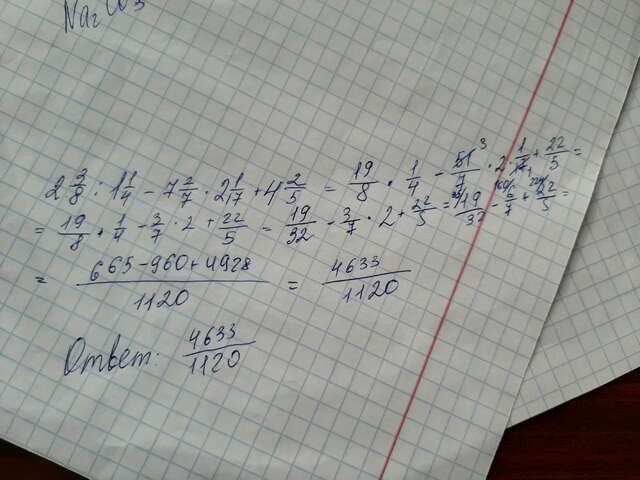 Na₂CO₃
2 3/8 : 1 1/4 - 7 2/7 · 2 1/17 + 4 2/5 = 19/8 · 1/4 - 51³/7 · 2 · 1/17₁ + 22/5 =
= 19/8 · 1/4 - 3/7 · 2 + 22/5 = 19/32 - 3/7 · 2 + 22/5 = 19/32 - 6/7 + 22/5 =
= (665 - 960 + 4928)/1120 = 4633/1120
Ответ: 4633/1120